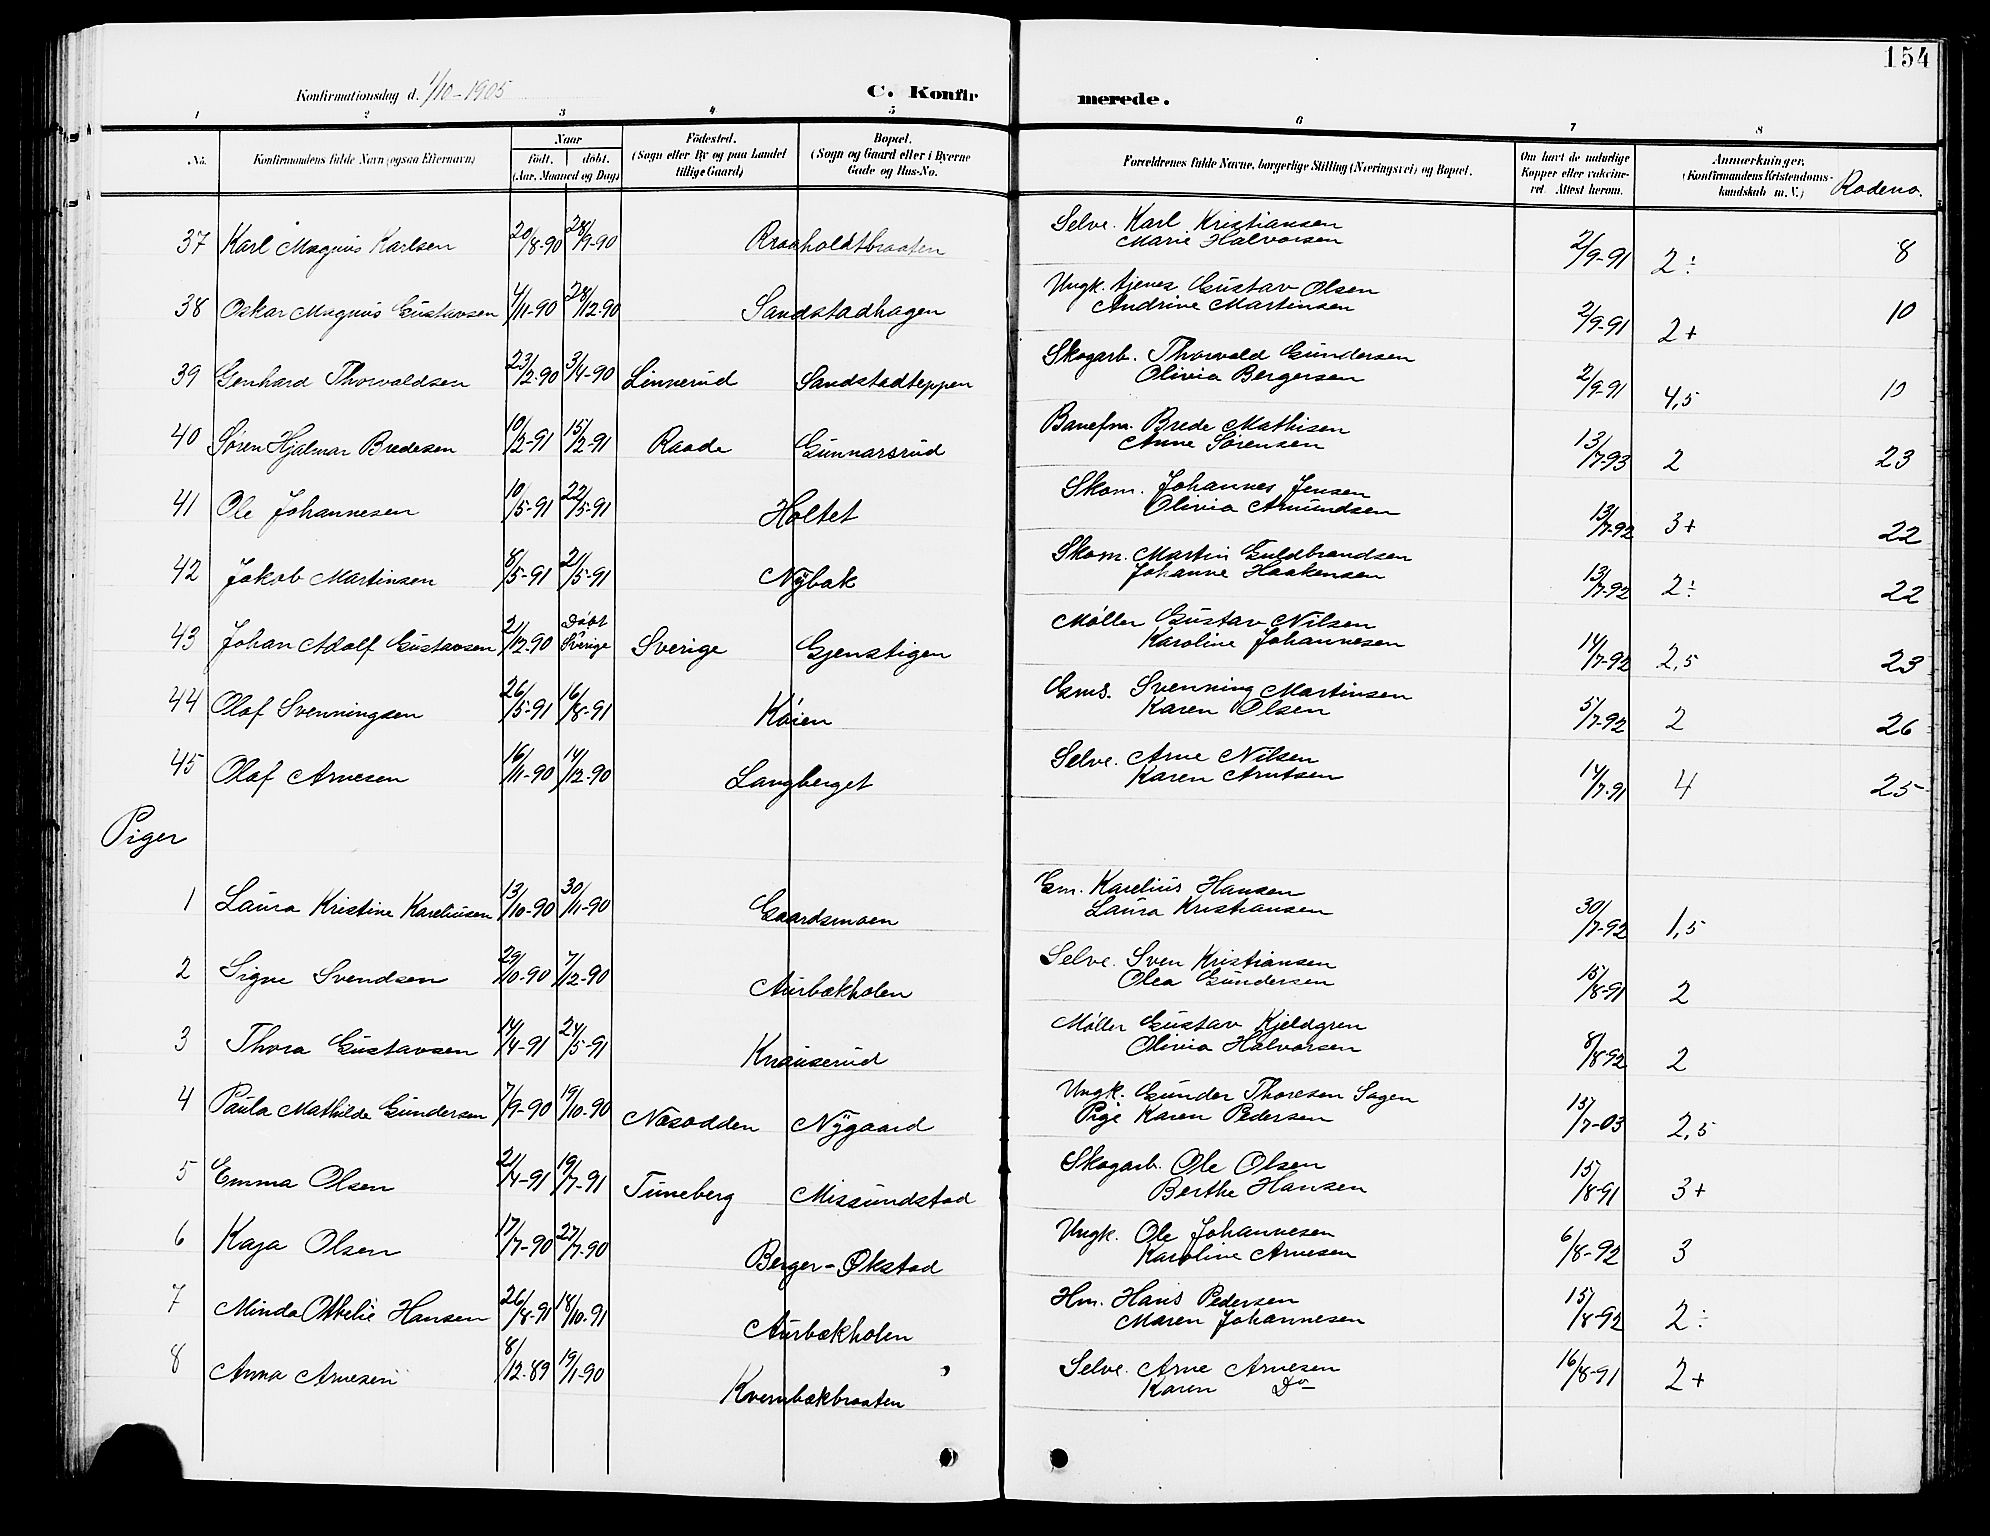 154
Konfirmationsdag d. 1/10-1905
C. Konfirmerede.
1 2 3 4 5 6 7 8
No. Konfirmandens fulde Navn (ogsaa Efternavn) Naar født. døbt. (Aar, Maaned og Dag) Fødested. (Sogn eller By og paa Landet tillige Gaard) Bopæl. (Sogn og Gaard eller i Byerne Gade og Hus-No. Forældrenes fulde Navne, borgerlige Stilling (Næringsvei) og Bopæl. Om havt de naturlige Kopper eller vakcineret. Attest herom. Anmærkninger. (Konfirmandens Kristendomskundskab m. V.) Rodeno.
37 Karl Magnus Karlsen 20/8-90 28/9-90 Raaholdtbraaten Selve. Karl Kristiansen 2/9-91 2÷ 8
Marie Halvorsen
38 Oskar Magnus Gustavsen 4/11-90 28/12-90 Sandstadhagen Ungk. tjener Gustav Olsen 2/9-91 2+ 10
Andrine Martinsen
39 Genhard Thorvaldsen 23/2-90 3/4-90 Linnerud Sandstadteppen Skogarb. Thorvald Gundersen 2/9-91 4,5 10
Olivia Bergersen
40 Søren Hjalmar Bredesen 10/2-91 15/2-91 Raade Gunnarsrud Banefm. Brede Mathisen 13/7-93 2 23
Anne Sørensen
41 Ole Johannesen 10/5-91 22/5-91 Holtet Skom. Johannes Jensen 13/7-92 3+ 22
Olivia Amundsen
42 Jakob Martinsen 8/5-91 21/5-91 Nybak Skom. Martin Guldbrandsen 13/7-92 2÷ 22
Johanne Haakensen
43 Johan Adolf Gustavsen 21/12-90 Døbt Sverige Sverige Gjenstigen Møller Gustav Nilsen 14/7-92 2,5 23
Karoline Johannesen
44 Olaf Svenningsen 26/5-91 16/8-91 Køien Gms. Svenning Martinsen 5/7-92 2 26
Karen Olsen
45 Olaf Arnesen 16/11-90 14/12-90 Langberget Selve. Arne Nilsen 14/7-91 4 25
Karen Arntsen
Piger
1 Laura Kristine Kareliusen 13/10-90 30/11-90 Gaardsmoen Gm. Karelius Hansen 30/7-92 1,5
Laura Kristiansen
2 Signe Svendsen 29/10-90 7/12-90 Aurbækholen Selve. Sven Kristiansen 15/8-91 2
Olea Gundersen
3 Thora Gustavsen 14/4-91 24/5-91 Knauserud Møller Gustav Kjeldgren 8/8-92 2
Olivia Halvorsen
4 Paula Mathilde Gundersen 7/9-90 19/10-90 Næsodden Nygaard Ungk. Gunder Thoresen Sagen 15/7-03 2,5
Pige Karen Pedersen
5 Emma Olsen 21/4-91 19/7-91 Tuneberg Missundstad Skogarb. Ole Olsen 15/8-91 3+
Berthe Hansen
6 Kaja Olsen 17/7-90 27/7-90 Berger-Økstad Ungk. Ole Johannesen 6/8-92 3
Karoline Arnesen
7 Minda Othelie Hansen 26/8-91 18/10-91 Aurbækholen Hm. Hans Pedersen 15/8-92 2÷
Maren Johannesen
8 Anna Arnesen 8/12-89 19/1-90 Kvernbækbraaten Selve. Arne Arnesen 16/8-91 2+
Karen Do